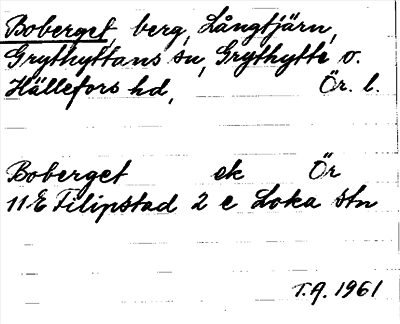 Boberget, berg, Långtjärn,
Grythyttans sn, Grythytte o.
Hällefors hd, Ör. l.
Boberget ek Ör
11E Filipstad 2 e Loka stn
T.A. 1961